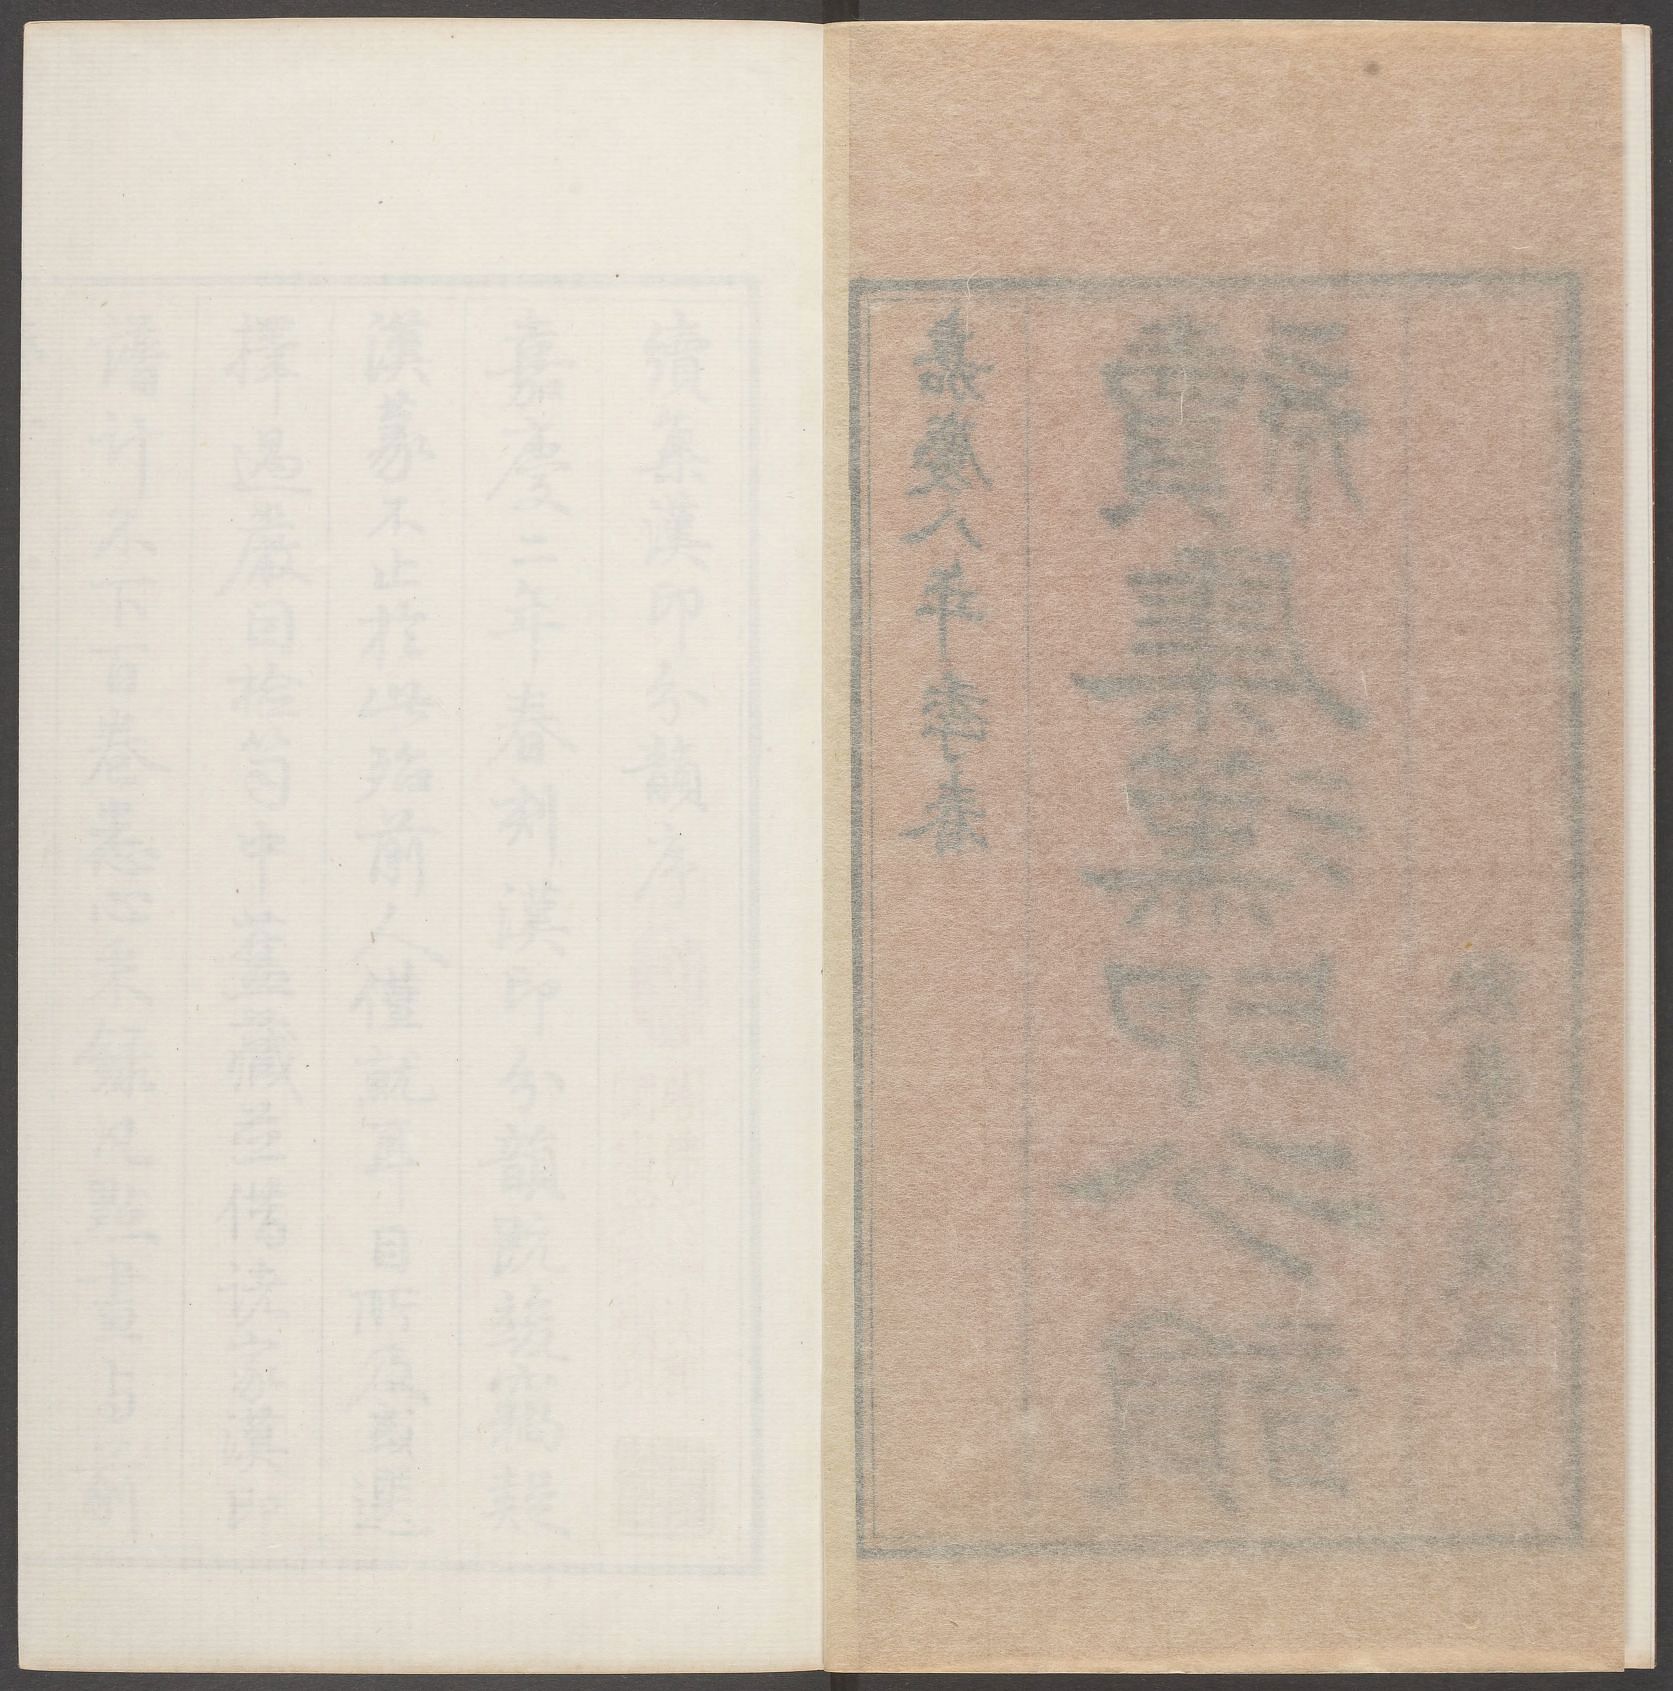 嘉慶八年季春
續集漢印分韻
漱藝堂藏板
續集漢印分韻序
嘉慶二年春刻漢印分韻既竣竊疑
漢篆不止於此殆前人僅就耳目所及或選
擇過嚴因檢笥中舊藏並借諸家漢印
譜計不下百卷悉心采錄凡點畫與前